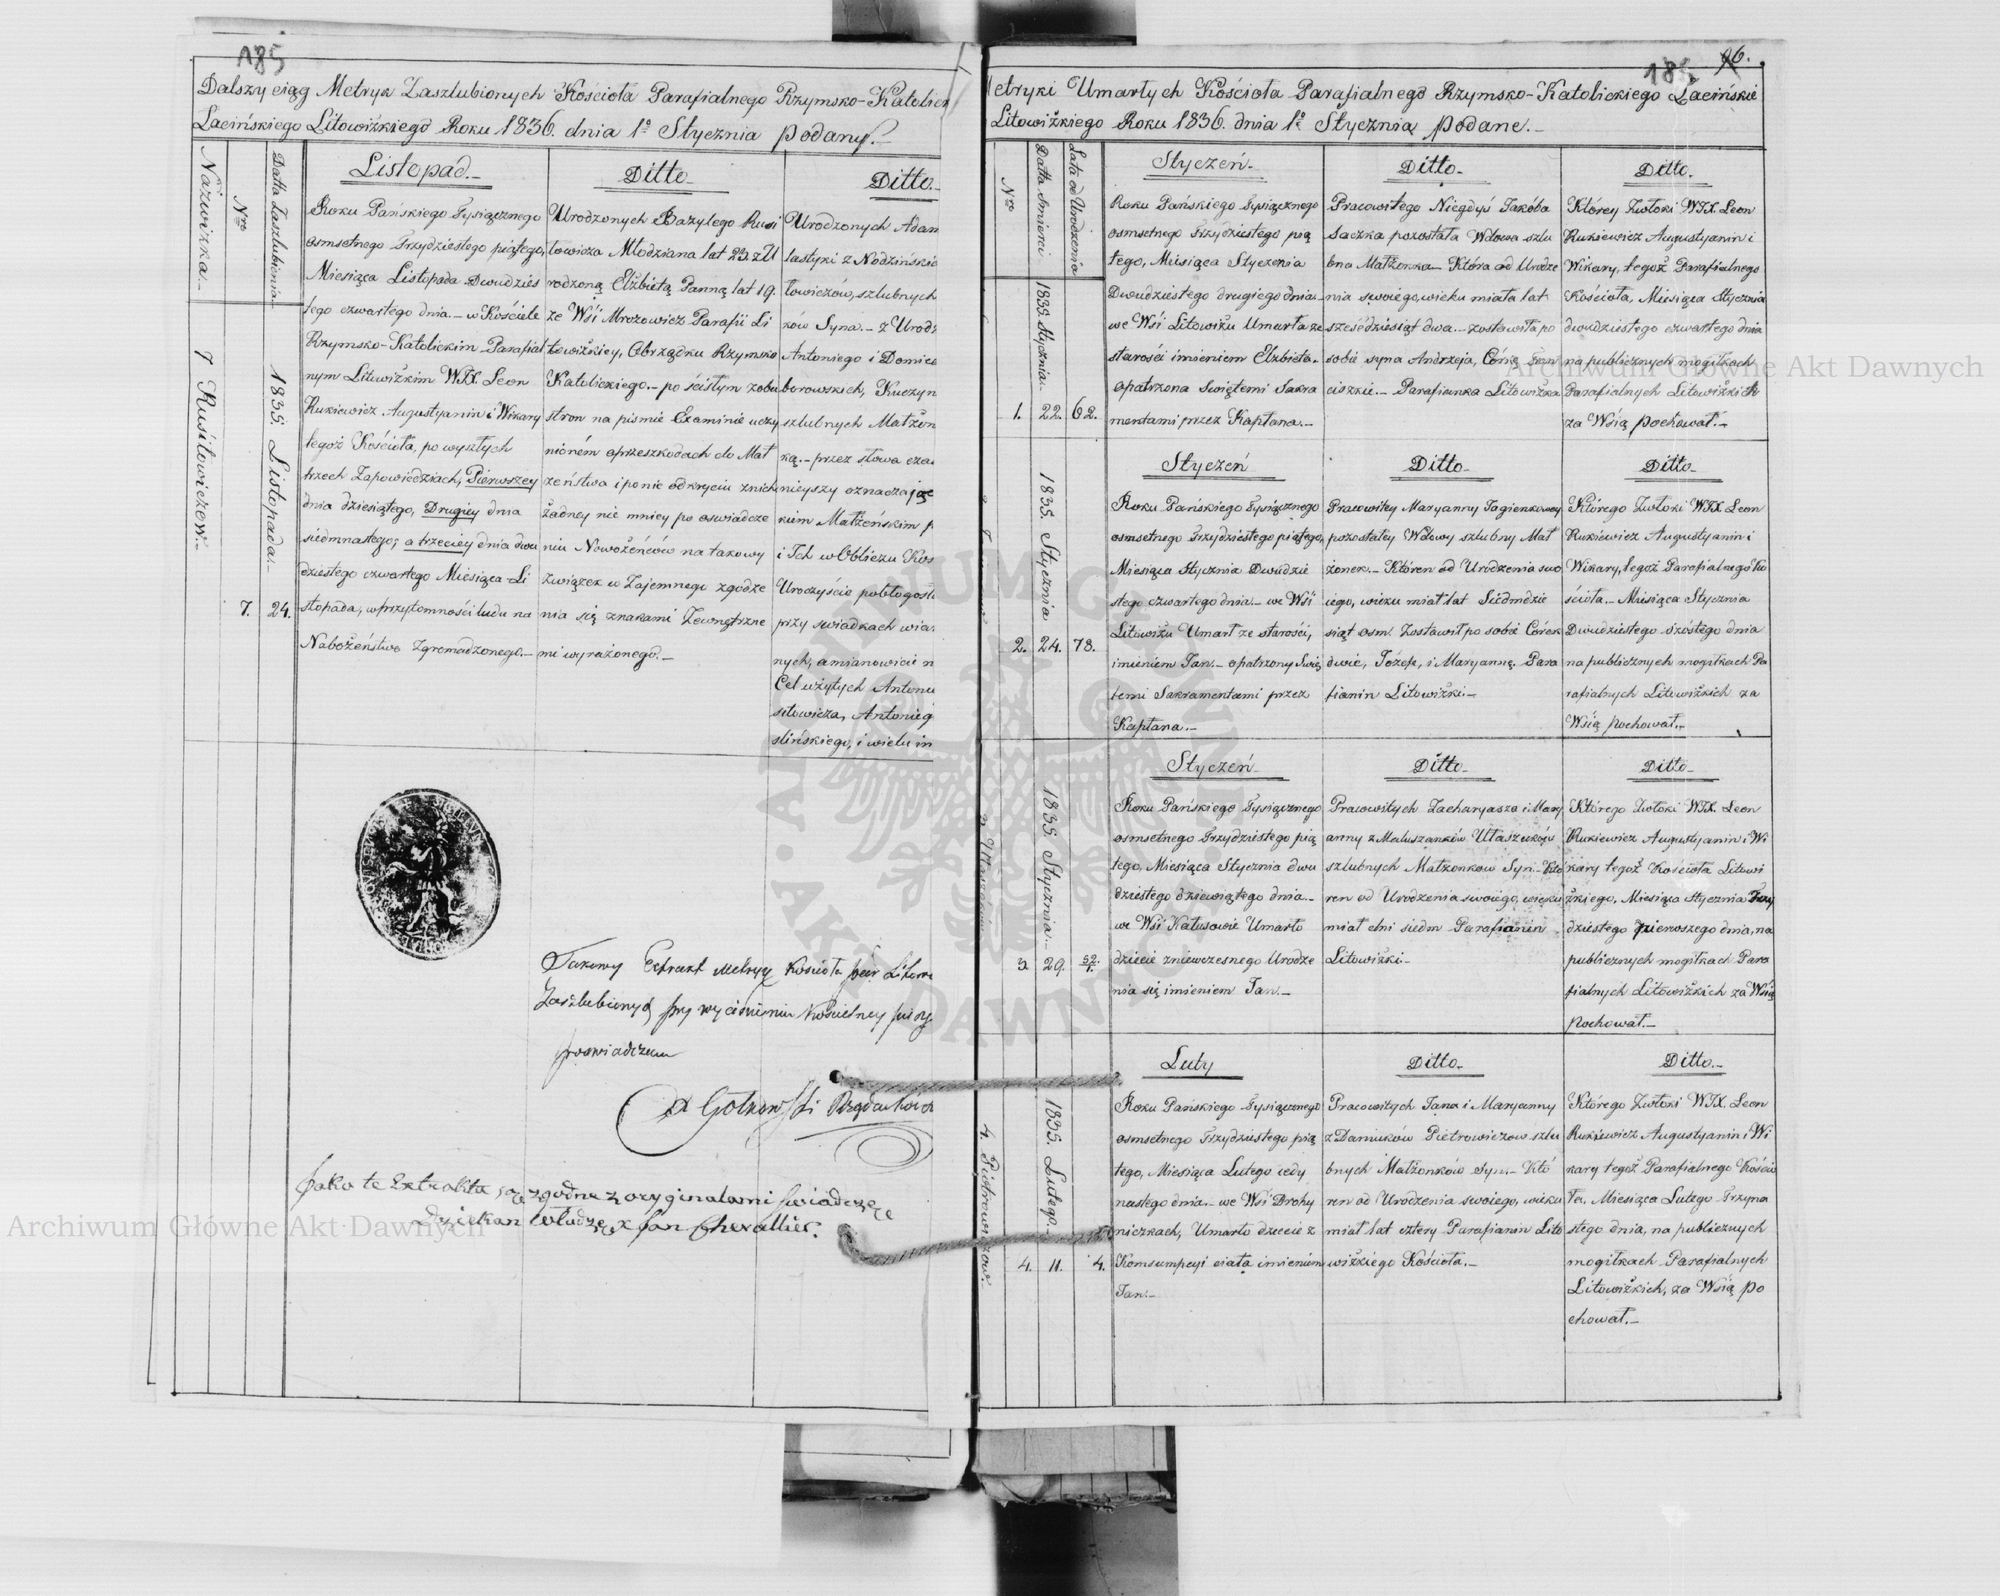 185
Dalszy ciąg Metryk Zaszlubionych Kościoła Parafialnego Rzymsko-Katolick
Łacińskiego Litowiżkiego Roku 1836. dnia 1º Stycznia podany.-
Nazwizka.
Nro
Datta Zaszlubienia.
7 Rusiłowiczów.
7.
1835. Listopada.-
24.
Listopad.-
Roku Pańskiego Tysiącznego
osmsetnego Trzydziestego piątego,
Miesiąca Listopada Dwudzies
tego czwartego dnia.- w Kościele
Rzymsko-Katolickim Parafial
nym Litowiżkim WJX. Leon
Rukiewicz Augustyanin i Wikary
tegoż Kościoła, po wyszłych
trzech Zapowiedziach, Pierwszey
dnia dziesiątego, Drugiey dnia
siedmnastego, a trzeciey dnia dwu
dziestego czwartego Miesiąca Li
stopada, w przytomności ludu na
Nabożeństwo Zgromadzonego.-
Ditto
Urodzonych Bazylego Rusi
łowicza Młodziana lat 23. z U
rodzoną Elżbietą Panną lat 19.
ze Wsi Mrozowicz Parafii Li
towiżkiey, Obrządku Rzymsko
Katolickiego.- po ścisłym z obu
stron na pismie Examinie uczy
nioném o przeszkodach do Mał
żeństwa i po nie odkryciu z nich
żadney nie mniey po oswiadcze
niu Nowożeńców na takowy
Związek w Zajemnego zgodze
nia się znakami Zewnętrzne
mi wyrażonego.-
Ditto.
Urodzonych Adam
lastyki z Nodzińskic
łowiczów, szlubnych
ków Syna.- z Urodz
Antoniego i Domice
borowskich, Kuczyn
szlubnych Małżon
ką.- przez słowa cza
nieyszy oznaczające
kiem Małżeńskim p
i Ich w Obliczu Koś
Uroczyście pobłogosł
przy swiadkach wia
nych, a mianowicie n
Cel użytych Antoni
siłowicza, Antonieg
slińskiego, i wielu in
Takowy Extrakt Metryk Kościoła
Zaszlubionych przy wyciśnieniu Kościelney
poswiadczam
Jako te Extrakta są zgodne z oryginałami swiadczę
Dziekan Włodz: X Jan Chevallier.
185 96.
Metryki Umarłych Kościoła Parafialnego Rzymsko-Katolickiego Łacińskie
Litowiżkiego Roku 1836. dnia 1º Stycznia podane.-
Nro
Datta Smierci
Lata od Urodzenia
1.
1835. Stycznia.
22.
62.
Styczeń.-
Roku Pańskiego Tysiącznego
osmsetnego Trzydziestego pią
tego, Miesiąca Stycznia
Dwudziestego drugiego dnia
we Wsi Litowiżu Umarła ze
starości imieniem Elżbieta.
opatrzona Swiętemi Sakra
mentami przez Kapłana.-
Ditto.
Pracowitego Niegdyś Jakóba
Saczka pozostała Wdowa szlu
bna Małżonka.- Która od Urodze
nia swoiego, wieku miała lat
szesćdziesiąt dwa.- zostawiła po
sobie syna Andrzeja, Córkę Fran
ciszkie.- Parafianka Litowiżka
Ditto.
Którey Zwłoki WJX. Leon
Rukiewicz Augustyanin i
Wikary, tegoż Parafialnego
Kościoła, Miesiąca Stycznia
dwudziestego czwartego dnia
na publicznych mogiłkach
Parafialnych Litowiżkich
za Wsią pochował.-
2.
1835. Stycznia
24.
78.
Styczeń
Roku Pańskiego Tysiącznego
osmsetnego Trzydziestego piątego,
Miesiąca Stycznia Dwudzie
stego czwartego dnia.- we Wsi
Litowiżu Umarł ze starości,
imieniem Jan.- opatrzony Swię
temi Sakramentami przez
Kapłana.-
Ditto.
Pracowitey Maryanny Jagienkowey
pozostałey Wdowy szlubny Mał
żonek.- Któren od Urodzenia swo
iego, wieku miał lat Siedmdzie
siąt osm. Zostawił po sobie Córek
dwie, Józefę, i Maryannę. Para
fianin Litowiżki.-
Ditto.
Którego Zwłoki WJX. Leon
Rukiewicz Augustyanin i
Wikary, tegoż Parafialnego Ko
ścioła.- Miesiąca Stycznia
Dwudziestego szóstego dnia
na publicznych mogiłkach Pa
rafialnych Litowiżkich za
Wsią pochował.-
3
1835 Stycznia.-
29.
Styczeń.
Roku Pańskiego Tysiącznego
osmsetnego Trzydziestego pią
tego, Miesiąca Stycznia dwu
dziestego dziewiątego dnia.-
we Wsi Kałusowie Umarło
dziecie z niewczesnego Urodze
nia się imieniem Jan.-
Ditto.
Pracowitych Zacharyasza i Mary
anny z Matuszanków Ułaszuków
szlubnych Małżonków Syn.- Któ
ren od Urodzenia swoiego, wieku
miał dni siedm Parafianin
Litowizki.-
Ditto.
Którego Zwłoki WJX. Leon
Rukiewicz Augustyanin i Wi
kary tegoż Kościoła Litowi
żkiego, Miesiąca Stycznia Trzy
dziestego pierwszego dnia, na
publicznych mogiłkach Para
fialnych Litowiżkich za Wsią
pochował.-
4. Pietrowiczow.
4.
1835. Lutego.-
11.
4.
Luty
Roku Pańskiego Tysiącznego
osmsetnego Trzydziestego pią
tego, Miesiąca Lutego iedy
nastego dnia.- we Wsi Drohy
niczkach, Umarło dziecie z
Komsumpcyi ciała imieniem
Jan.-
Ditto.
Pracowitych Jana i Maryanny
z Daniuków Pietrowiczow szlu
bnych Małżonków Syn.- Któ
ren od Urodzenia swoiego, wieku
miał lat cztery Parafianin Lito
wizkiego Kościoła.-
Ditto.-
Którego Zwłoki WJX. Leon
Rukiewicz Augustyanin i Wi
kary tegoż Parafialnego Kościo
ła. Miesiąca Lutego Trzyna
stego dnia, na publicznych
mogiłkach Parafialnych
Litowiżkich, za Wsią po
chował.-
Archiwum Główne Akt Dawnych
Archiwum Główne Akt Dawnych